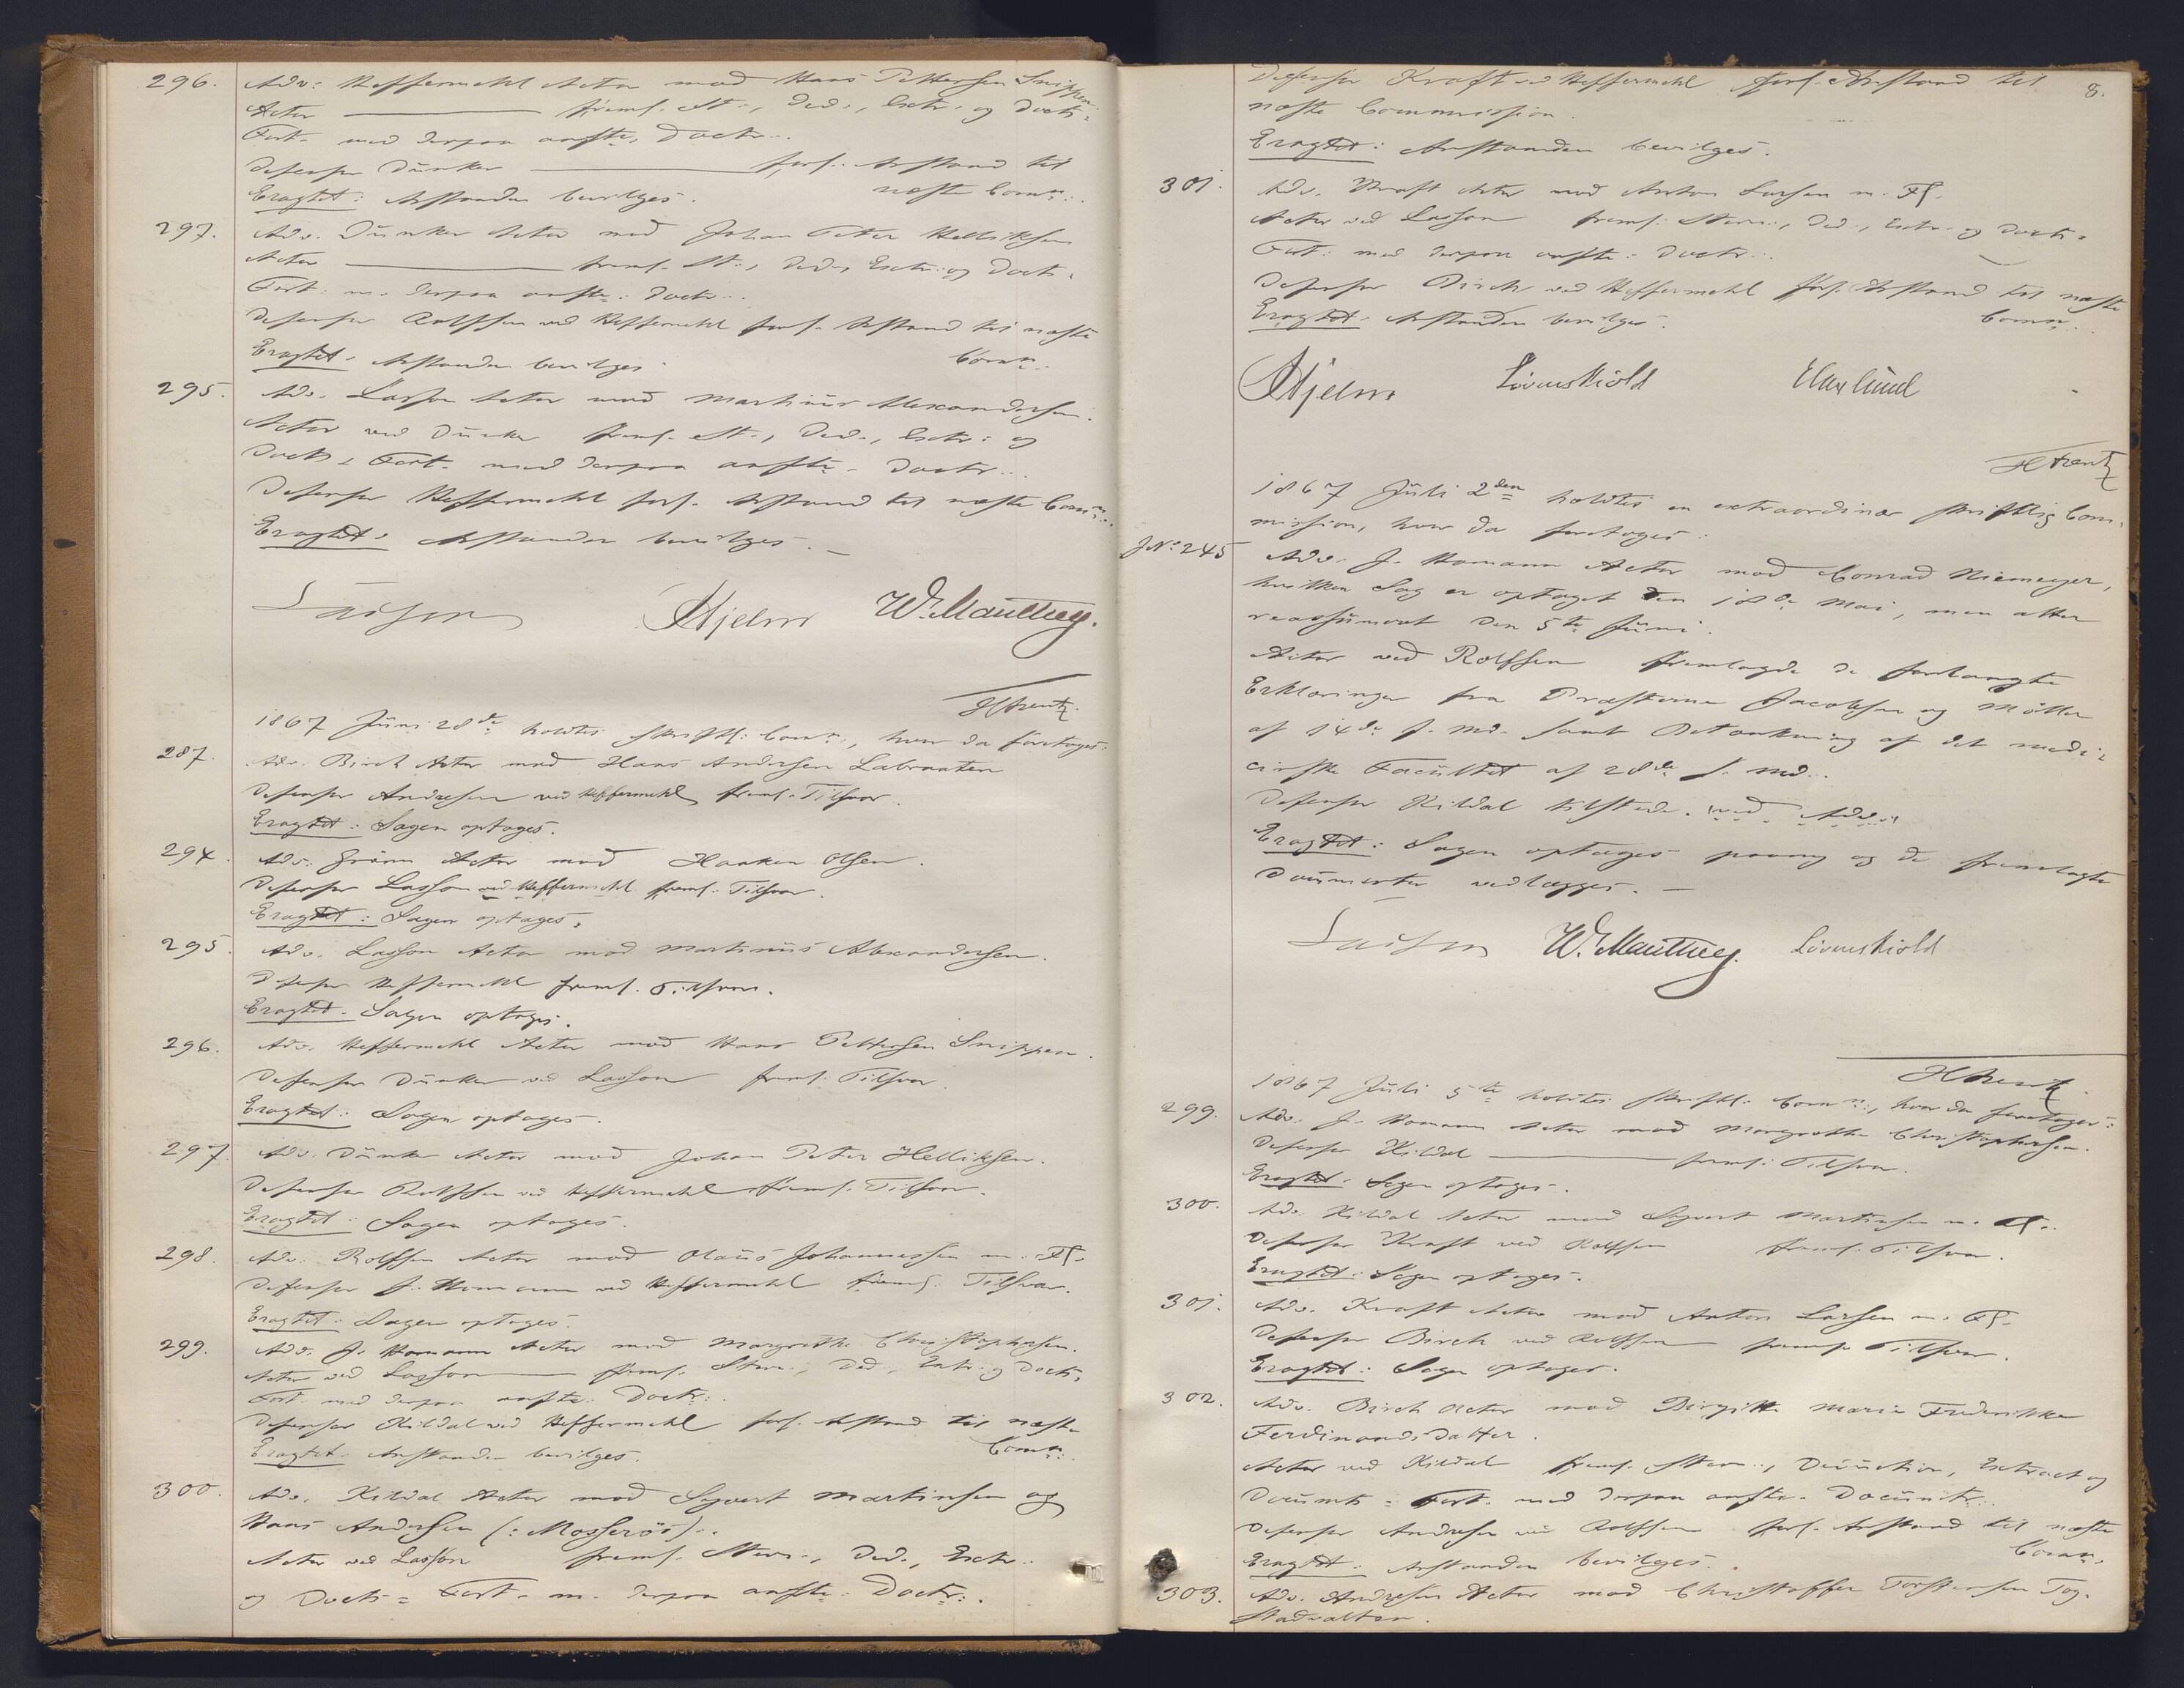 296. Adv: Heffermehl Actor mod Hans Pettersen Snippen.
Actor ——— freml. St., Ded., Extr. og Docts=
Fort. med derpaa anførte Doctr..
Defensor Dünker ——— forl. Anstand til
Eragtet: Anstanden bevilges. næste Comn:.
297. Adv. Dünker Actor mod Johan Peter Helliksen
Actor ——— freml. St., Ded., Extr: og Docts=
Fort. m. derpaa anførte: Doctr..
Defensor Rolffsen ved Heffermehl forl. Anstand til næste
Eragtet: Anstanden bevilges. Comn:.
295. Adv. Lasson Actor mod Martinus Alexandersen.
Actor ved Dünker freml. St., Ded., Extr: og
Docts= Fort. med derpaa anførte. Doctr...
Defensor Heffermehl forl. Anstand til næste Comn:..
Eragtet: Anstanden bevilges. —
Lasson Hjelm W. Manthey.
H Arentz
1867 Juni 28de holdtes skriftl: Comn:, hvor da foretages:
287. Adv. Birch Actor mod Hans Andersen Labraaten
Defensor Andresen ved Heffermehl freml. Tilsvar.
Eragtet: Sagen optages.
294. Adv: Grönn Actor mod Haaken Olsen.
Defensor Lasson ved Heffermehl freml. Tilsvar.
Eragtet: Sagen optages.
295. Adv. Lasson Actor mod Martinus Alexandersen.
Defensor Heffermehl freml. Tilsvar.
Eragtet. Sagen optages.
296. Adv. Heffermehl Actor mod Hans Pettersen Snippen.
Defensor Dünker ved Lasson freml. Tilsvar
Eragtet: Sagen optages.
297. Adv. Dünker Actor mod Johan Peter Helliksen.
Defensor Rolffsen ved Heffermehl freml. Tilsvar.
Eragtet: Sagen optages.
298. Adv. Rolffsen Actor mod Olaus Johannessen m. Fl.
Defensor J. Homann ved Heffermehl freml. Tilsvar.
Eragtet: Sagen optages.
299. Adv. J. Homann Actor mod Margrethe Christophersen.
Actor ved Lasson — freml. Stevn., Ded., Extr. og Docts=
Fort. med derpaa anførte. Doctr:.
Defensor Kildal ved Heffermehl forl. Anstand til næste
Eragtet. Anstanden bevilges. Comn:.
300. Adv. Kildal Actor mod Syvert Martinsen og
Hans Andersen (: Mosserös)..
Actor ved Lasson freml. Stevn., Ded., Extr..
og Docts= Fort. m. derpaa anførte: Doctr:.
8.
Defensor Kraft ved Heffermehl forl. Anstand til
næste Commission.
Eragtet: Anstanden bevilges.
301. Adv. Kraft Actor mod Anton Larsen m. Fl.
Actor ved Lasson freml: Stevn:, Ded., Extr. og Docts=
Fort. med derpaa anførte: Doctr...
Defensor Birch ved Heffermehl forl. Anstand til næste
Eragtet. Anstanden bevilges. Comn:..
Hjelm Lövenskiold
H Arentz
1867 Juli 2den holdtes en extraordinær skriftlig Com=
mission, hvor da foretages:
JNo 245 Adv. J. Homann Actor mod Conrad Niemeyer,
hvilken Sag er optaget den 18de Mai, men atter
reassümeret den 5te Juni.
Actor ved Rolffsen fremlagde de forlangte
Erklæringer fra Præsterne Jacobsen og Möller
af 14de f. Md. samt Betænkning af det medi=
cinske Facültet af 28de f. Md..
Defensor Kildal tilstede.
Eragtet: Sagen optages paany og de fremlagte
Documenter vedlægges. —
Lasson W. Manthey. Lövenskiold
H Arentz.
1867 Juli 5te holdtes skriftl: Comn:, hvor da foretages:
299. Adv. J. Homann Actor mod Margrethe Christophersen.
Defensor Kildal ——— freml: Tilsvar.
Eragtet: Sagen optages.
300. Adv. Kildal Actor mod Syvert Martinsen m. Fl..
Defensor Kraft ved Rolffsen freml. Tilsvar.
Eragtet: Sagen optages.
301. Adv. Kraft Actor mod Anton Larsen m. Fl.
Defensor Birch ved Rolffsen freml. Tilsvar.
Eragtet: Sagen optages.
302. Adv. Birch Actor mod Birgitte Marie Frederikke
Ferdinandsdatter.
Actor ved Kildal freml. Stevn., Deduction, Extract og
Documts= Fort. med derpaa anførte. Documtr..
Defensor Andresen ved Rolffsen forl. Anstand til næste
Eragtet: Anstanden bevilges. Comn.
303. Adv. Andresen Actor mod Christoffer Torstensen Tog=
stadvalten.